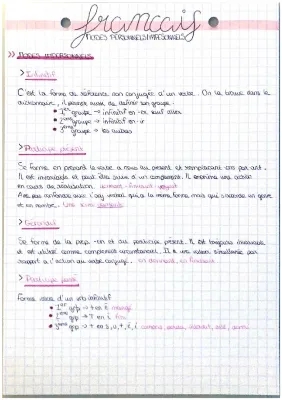 français
MODES PERSONNELS/IMPERSONNELS
>> MODES IMPERSONNELS
> Infinitif
C'est la forme de référence non conjuguée d'un verbe. On la trouve dans le
dictionnaire, il permet aussi de définir son groupe.
• 1er groupe → infinitif en -er sauf aller
• 2ème groupe → infinitif en -ir
• 3ème groupe → les autres
> Participe présent
Se forme en prenant le verbe à nous au présent et remplaçant ons par ant.
Il est invariable et peut être suivi d'un complément. Il exprime une action
en cours de réalisation.
Ne pas confondre avec l'adj verbal qui a la même forme mais qui s'accorde en genre
et en nombre. Une
> Gérondif
Se forme de la prep. en et du participe présent. Il est toujours invariable
et est utilisé comme complément circonstanciel. Il a une valeur
rapport à l'action du verbe conjugué. en
> Participe passé
Forme
• 1er grp → é mangé
• 2ème grp → i fini
• 3ème grp → s, u, t, i